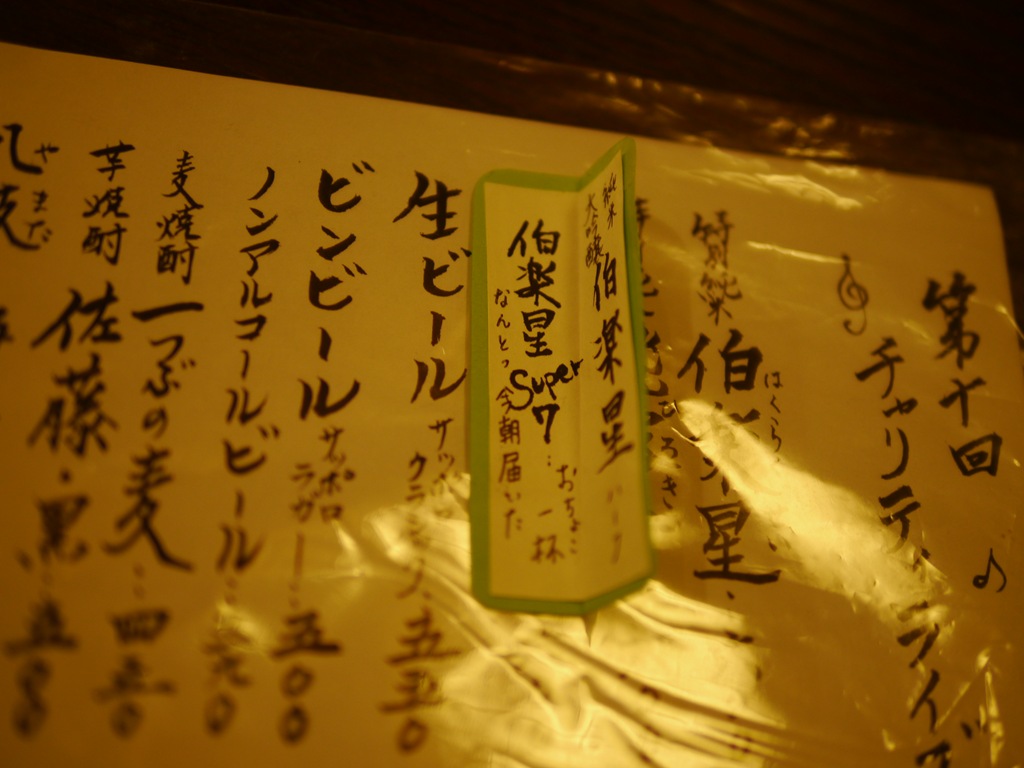 第十回
チャリティライブ
特別純米
伯楽星
はくら
純米
大吟醸
伯楽星
伯楽星
Super 7…
おちょこ
一杯
なんとっ今朝届いた
生ビール
サッポロ
クラシック
五五〇
ビンビール
サッポロ
ラガー…
五〇〇
ノンアルコールビール…
麦焼酎
一つぶの麦…
四五〇
芋焼酎
佐藤・黒…
五〇〇
やまだ